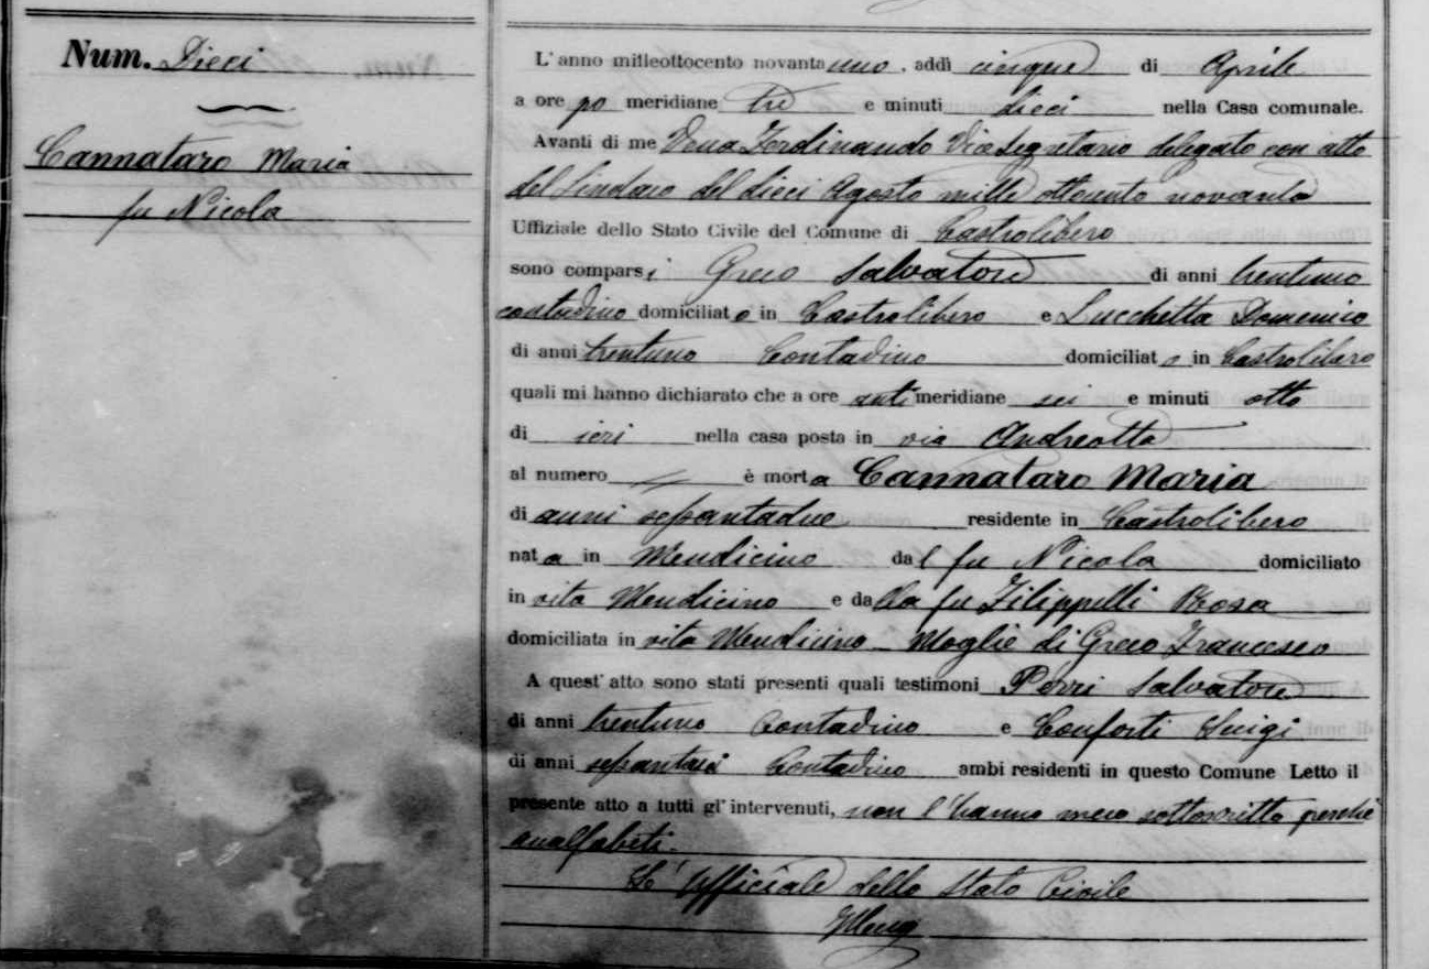 Num. Dieci
Cannataro Maria
fu Nicola
L'anno milleottocento novantauno, addì cinque di Aprile
a ore po meridiane tre e minuti dieci nella Casa comunale.
Avanti di me Ferdinando Vice Segretario delegato con atto
del Sindaco del dieci Agosto mille ottocento novanta
Uffiziale dello Stato Civile del Comune di Castrolibero
sono comparsi Greco Salvatore di anni trentuno
contadino domiciliato in Castrolibero e Lucchetta Domenico
di anni trentuno Contadino domiciliato in Castrolibero
quali mi hanno dichiarato che a ore antimeridiane sei e minuti otto
di ieri nella casa posta in via Andreotta
al numero è morta Cannataro Maria
di anni sessantadue residente in Castrolibero
nata in Mendicino dal fu Nicola domiciliato
in vita Mendicino e dalla fu Filippelli Rosa
domiciliata in vita Mendicino - Moglie di Greco Francesco
A quest'atto sono stati presenti quali testimoni Perri Salvatore
di anni trentuno Contadino e Conforti Luigi
di anni Contadino ambi residenti in questo Comune Letto il
presente atto a tutti gl'intervenuti, non l'hanno meco sottoscritto perchè
analfabeti.
L'Ufficiale dello Stato Civile